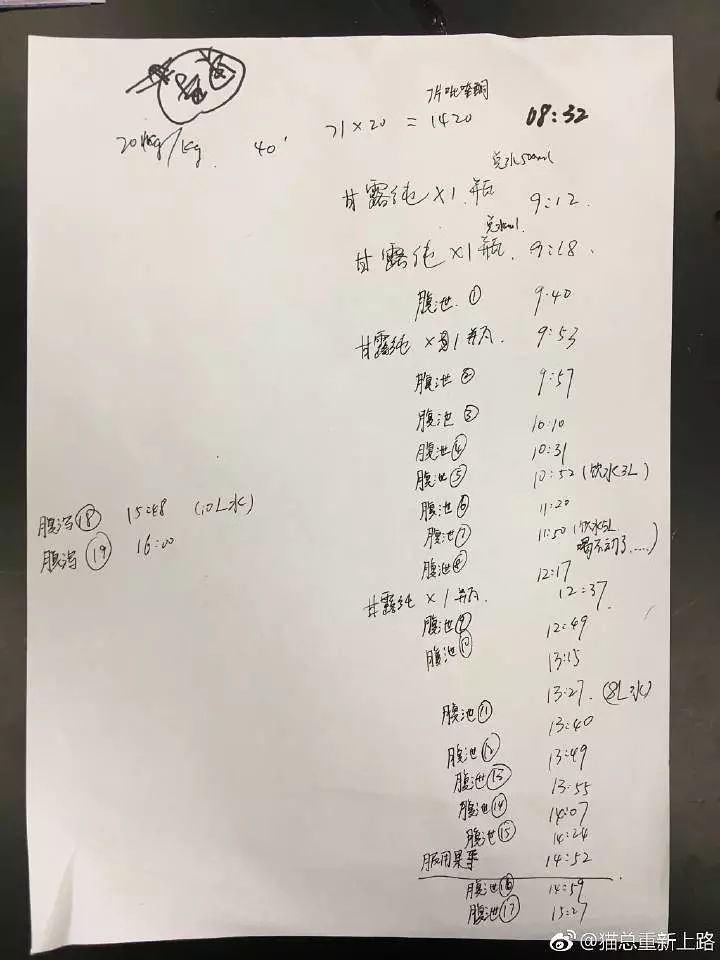 7片吡喹酮
20mg/kg 40' 71×20 = 1420 08:32
兑水500ml
甘露纯 ×1 瓶 9:12.
兑水ml.
甘露纯 ×1瓶. 9:18.
腹池 ① 9:40
甘露纯 × 1 瓶. 9:53
腹池 ② 9:57
腹池 ③ 10:10
腹池 ④ 10:31
腹池 ⑤ 10:52 (饮水3L)
腹池 ⑥ 11:20
腹池 ⑦ 11:50 (饮水5L
喝不动了......)
腹池 ⑧ 12:17
甘露纯 × 1 瓶. 12:37.
腹池 ⑨ 12:49
腹池 ⑩ 13:15
13:27. (8L水)
腹池 ⑪ 13:40
腹池 ⑫ 13:49
腹池 ⑬ 13:55
腹池 ⑭ 14:07
腹池 ⑮ 14:24
服用果 14:52
腹池 ⑯ 14:59
腹池 ⑰ 15:27
腹泻 ⑱ 15:48 (10L水)
腹泻 ⑲ 16:00
@猫总重新上路